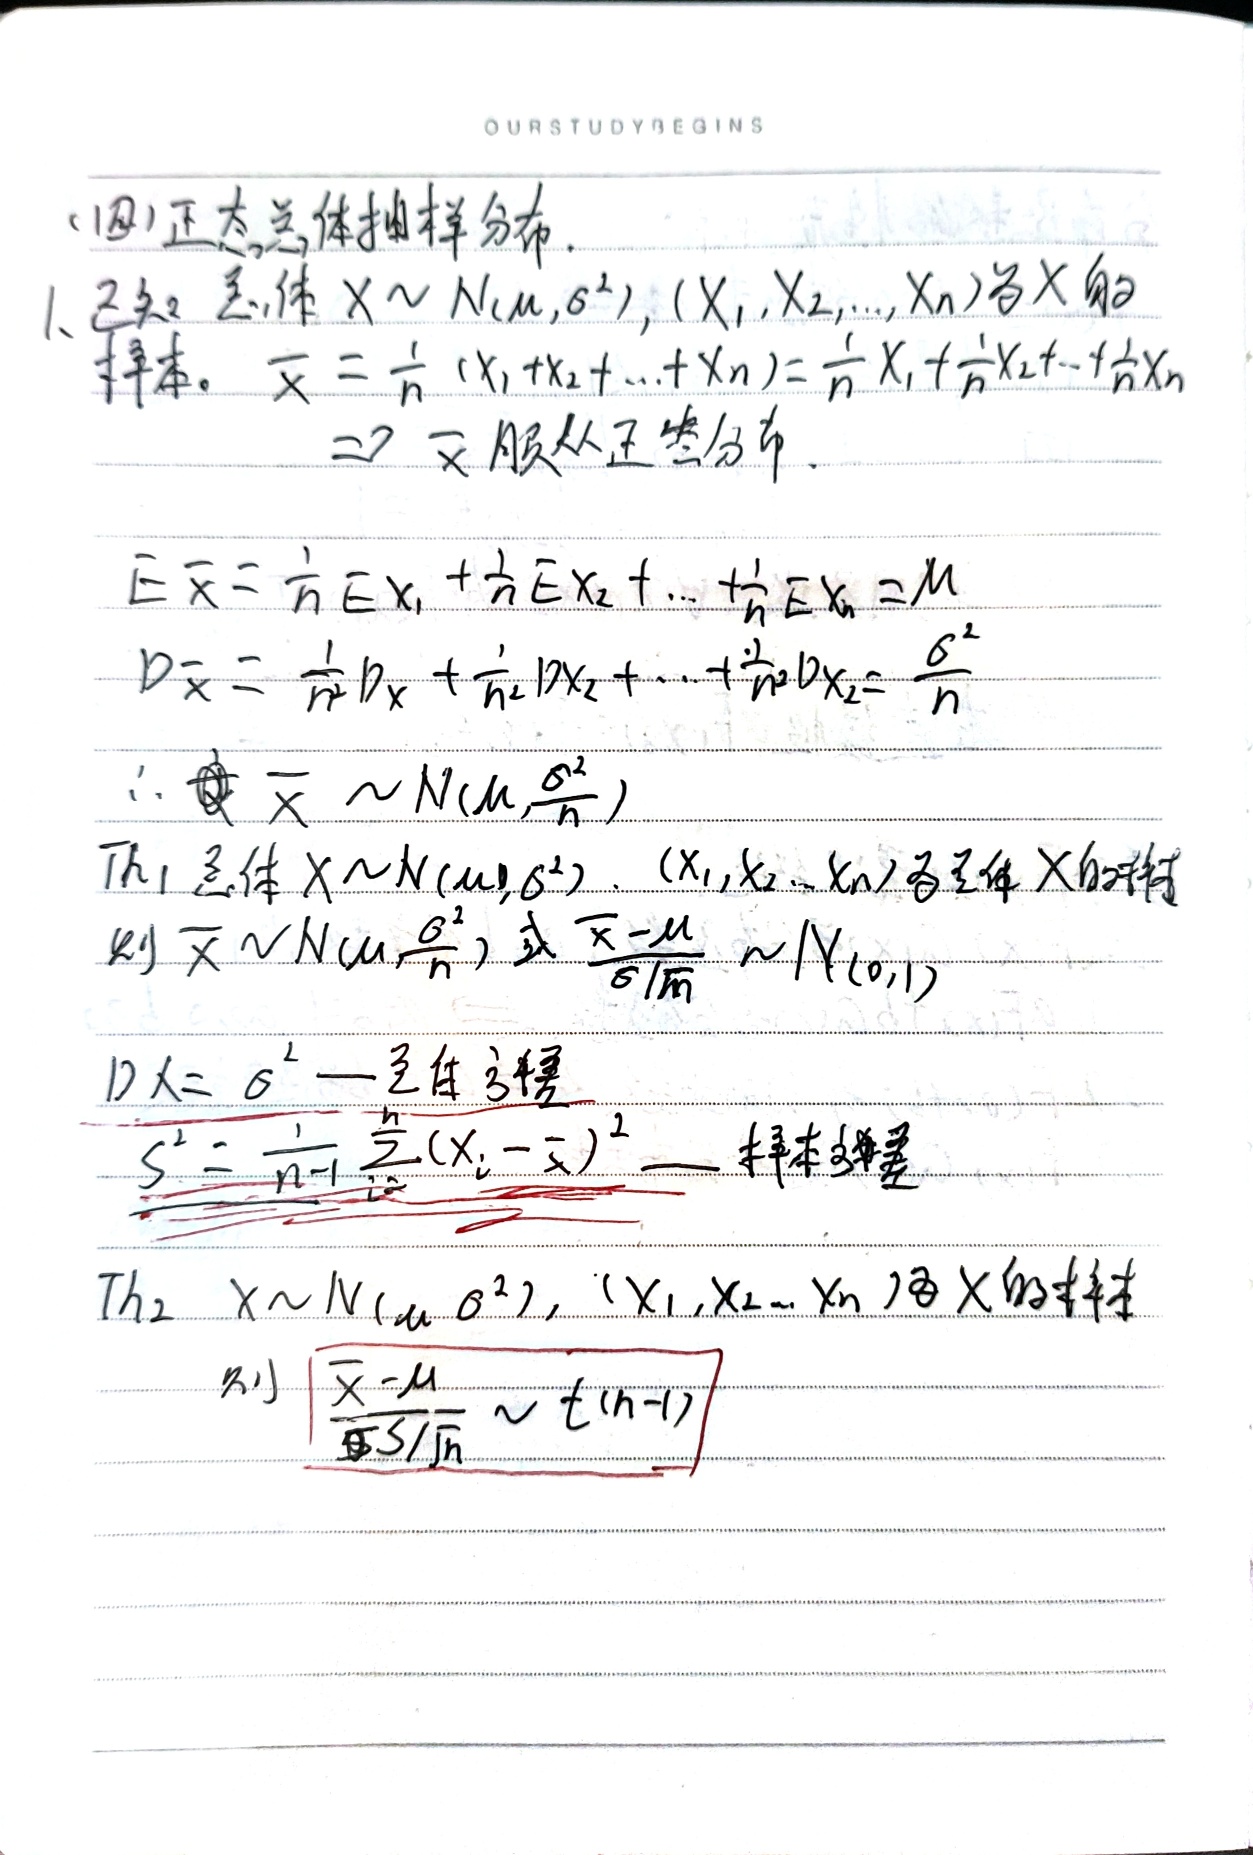 OURSTUDYBEGINS
(四)正态总体抽样分布.
1、已知 总体 X ~ N(μ, σ²), (X₁, X₂, ..., Xn)为X的
样本。 x̄ = 1/n (X₁+X₂+...+Xn) = 1/n X₁ + 1/n X₂+...+ 1/n Xn
⇒ x̄ 服从正态分布.
E x̄ = 1/n E X₁ + 1/n E X₂ + ... + 1/n E Xn = μ
D x̄ = 1/n² Dx + 1/n² DX₂ + ... + 1/n² DX₂ = σ²/n
∴ x̄ ~ N(μ, σ²/n)
Th₁ 总体 X~N(μ, σ²). (X₁, X₂...Xn)为总体X的样本
则 x̄ ~ N(μ, σ²/n) 或 (x̄-μ)/(σ/√n) ~ N(0,1)
DX = σ² — 总体方差
S² = 1/(n-1) Σ(Xi - x̄)² — 样本方差
Th₂ X~N(μ σ²), (X₁, X₂...Xn)为X的样本
则 (x̄-μ)/(S/√n) ~ t(n-1)